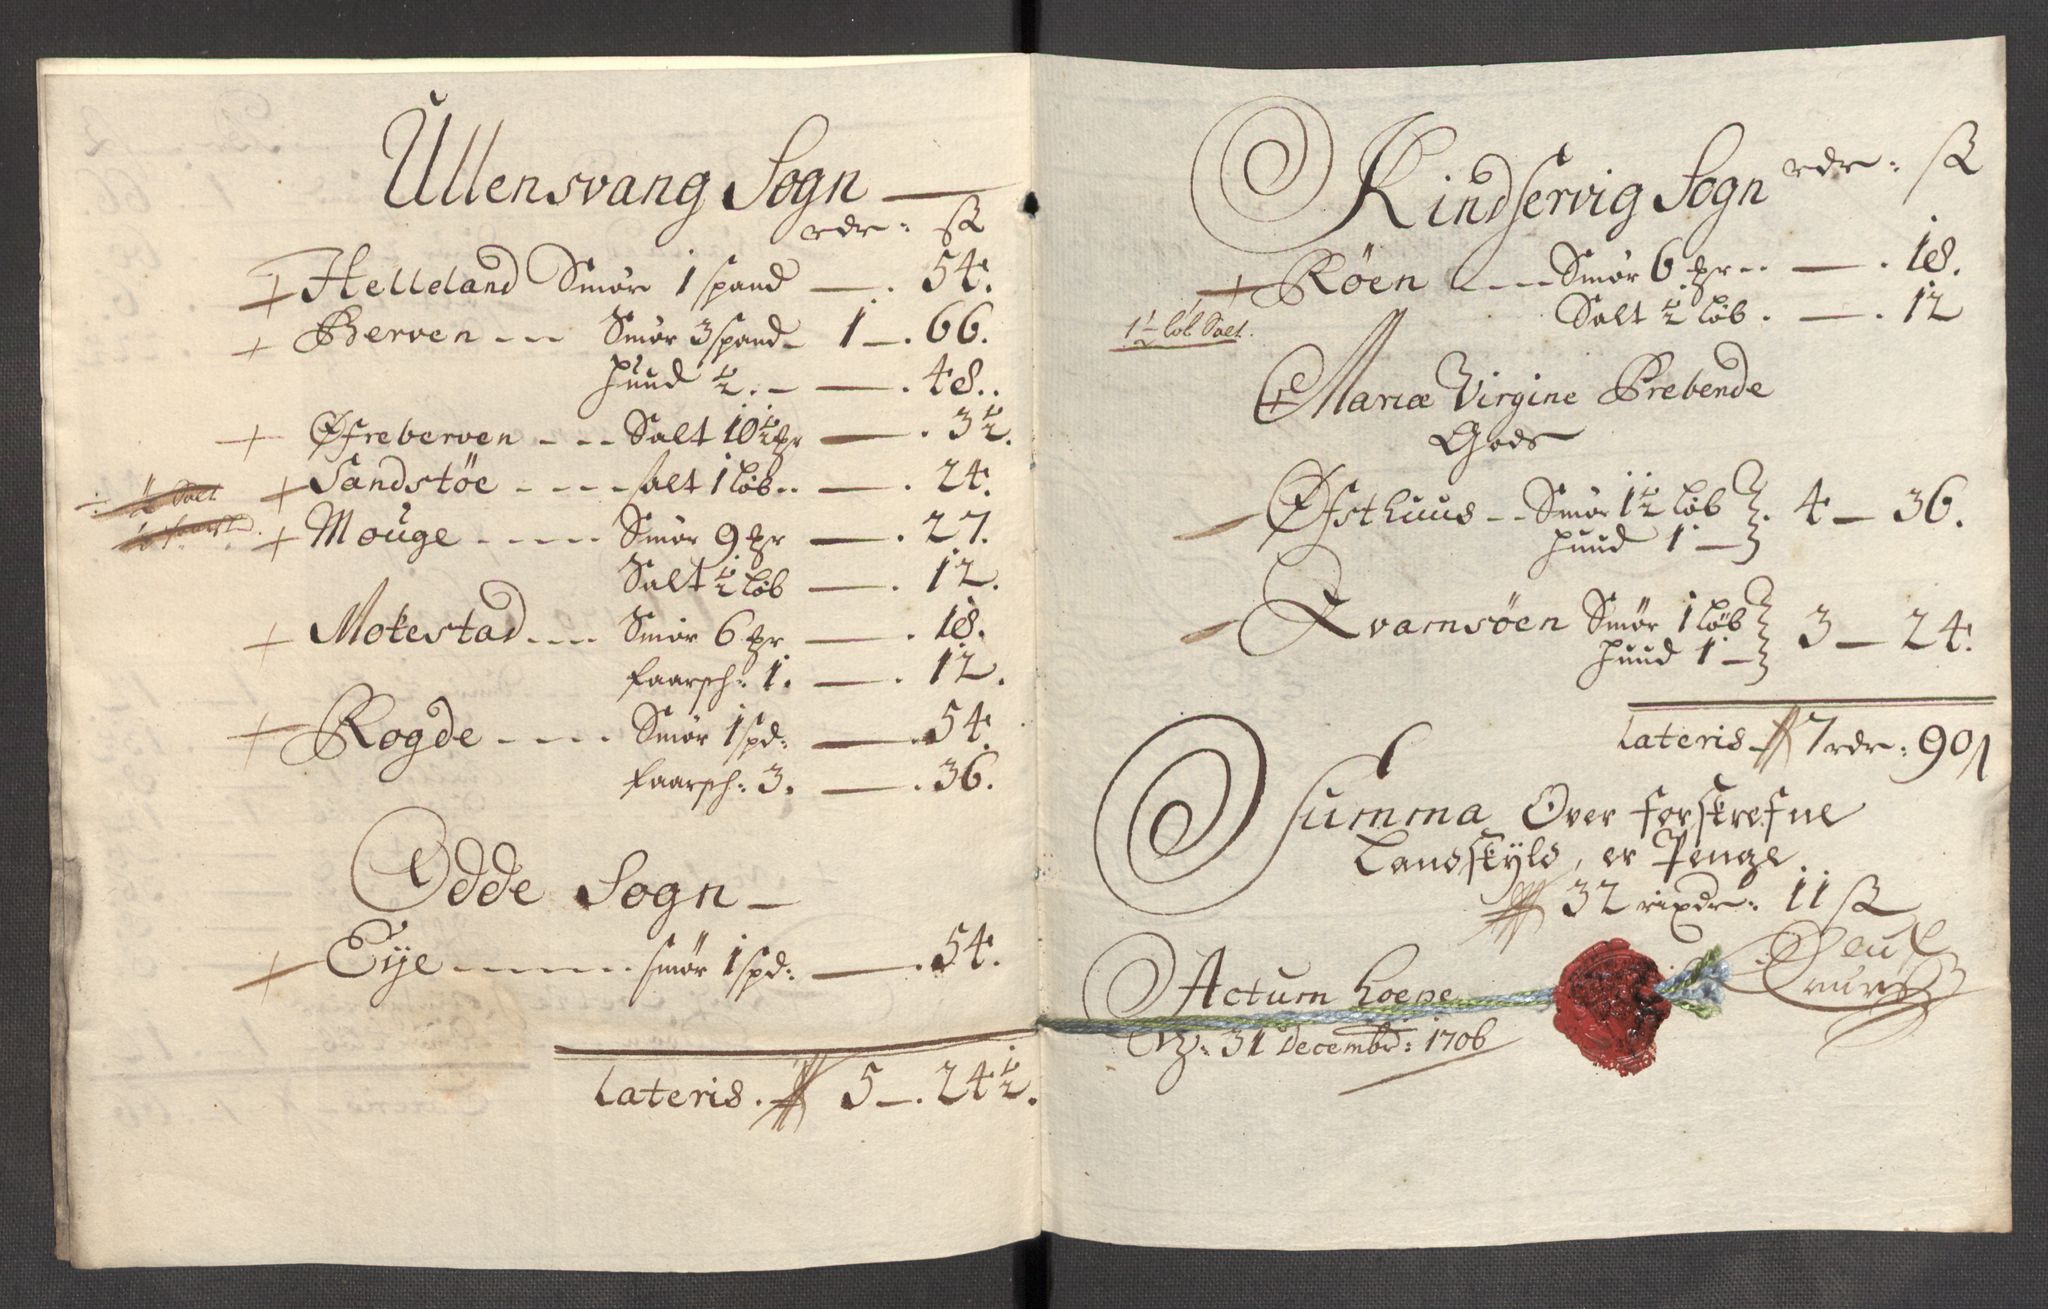 Ullensvang Sogn
rdr: ß
+ Helleland Smør 1 spand — . 54.
+ Berven - - - Smør 3 spand - 1 — . 66.
huud ½ . - — . 48..
+ Øfreberven - - - Salt 10½ pr — . 3½.
÷ ½ Salt + Sandstöe - - - - salt 1 løb.. — . 24.
+ Mouge - - - - - Smør 9 pr — . 27.
Salt ½ løb — . 12.
+ Mokestad - - - Smør 6 pr — . 18.
faarsch: 1. — . 12.
+ Rogde - - - - Smør 1 spd: — . 54.
faarsch: 3. — . 36.
Odde Sogn —
+ Eije - - - - - - - smør 1 spd: — . 54.
Lateris . 5 — . 24½.
Kindservig Sogn rdr: ß
+ Röen - - - - Smør 6 pr - - — . 18.
1½ løb Salt. Salt ½ løb . — . 12
+ Mariæ Virgine Prebende
Gods
Øfsthuus - - Smør 1½ løb . 4 — 36.
huud 1 —
Qvamsöen Smør 1 løb 3 — 24.
huud 1 —
Lateris 7 rdr: 90
Summa Over forskrefne
Landskyld, er Penge.
32 rixdr: 11 ß
Actum Hoepe
31 Decembr: 1706